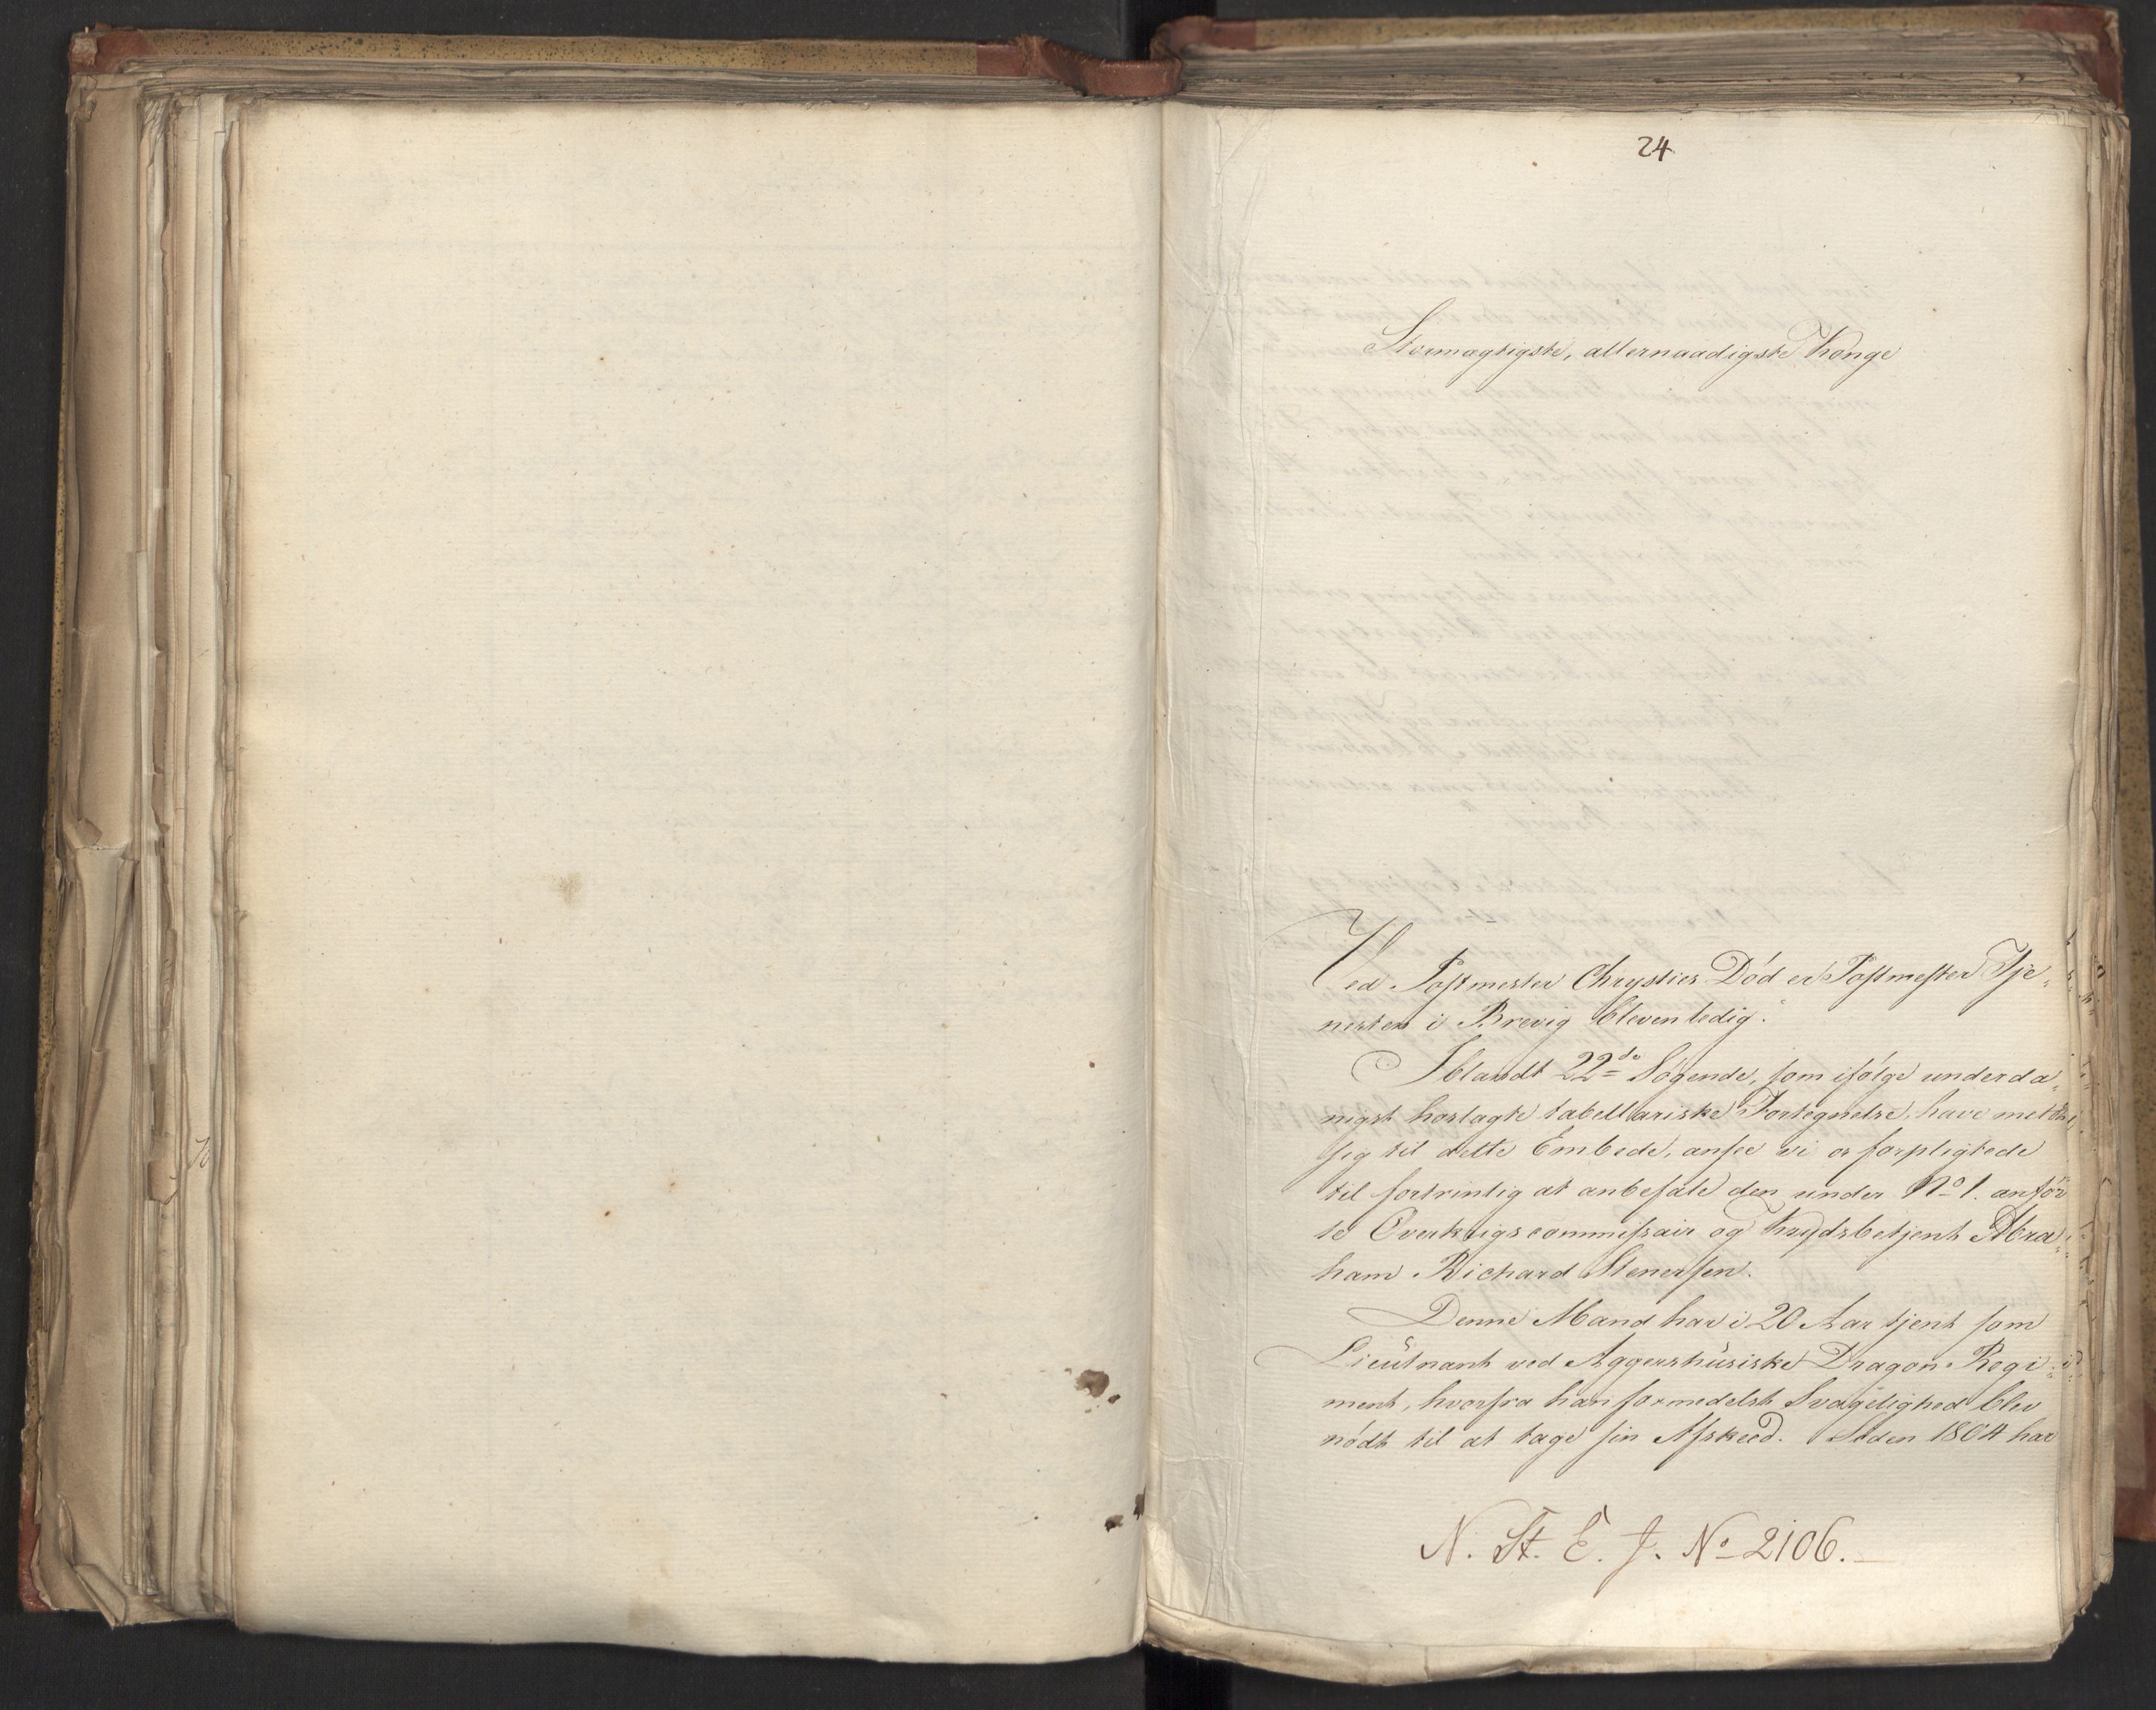 24
Stormægtigste, allernaadigste Konge
Ved Postmester Chrysties Død er Postmester Tje„
nesten i Brevig bleven ledig.
Iblandt 22de Søgende, som ifølge underda„
nigst hoslagte tabellariske Fortegnelse, have meldt
sig til dette Embede, ansee vi os forpligtede
til fortrinlig at anbefale den under No 1. anfør
te Overkrigscommissair og Krydsbetjent Abra„
ham Richard Stenersen.
Denne Mand har i 20 Aar tjent som
Lieutnant ved Aggershusiske Dragon-Regi„
ment, hvorfra han formedelst Svagelighed blev
nødt til at tage sin Afskeed. Siden 1804 har
N. St. E. J. No 2106.